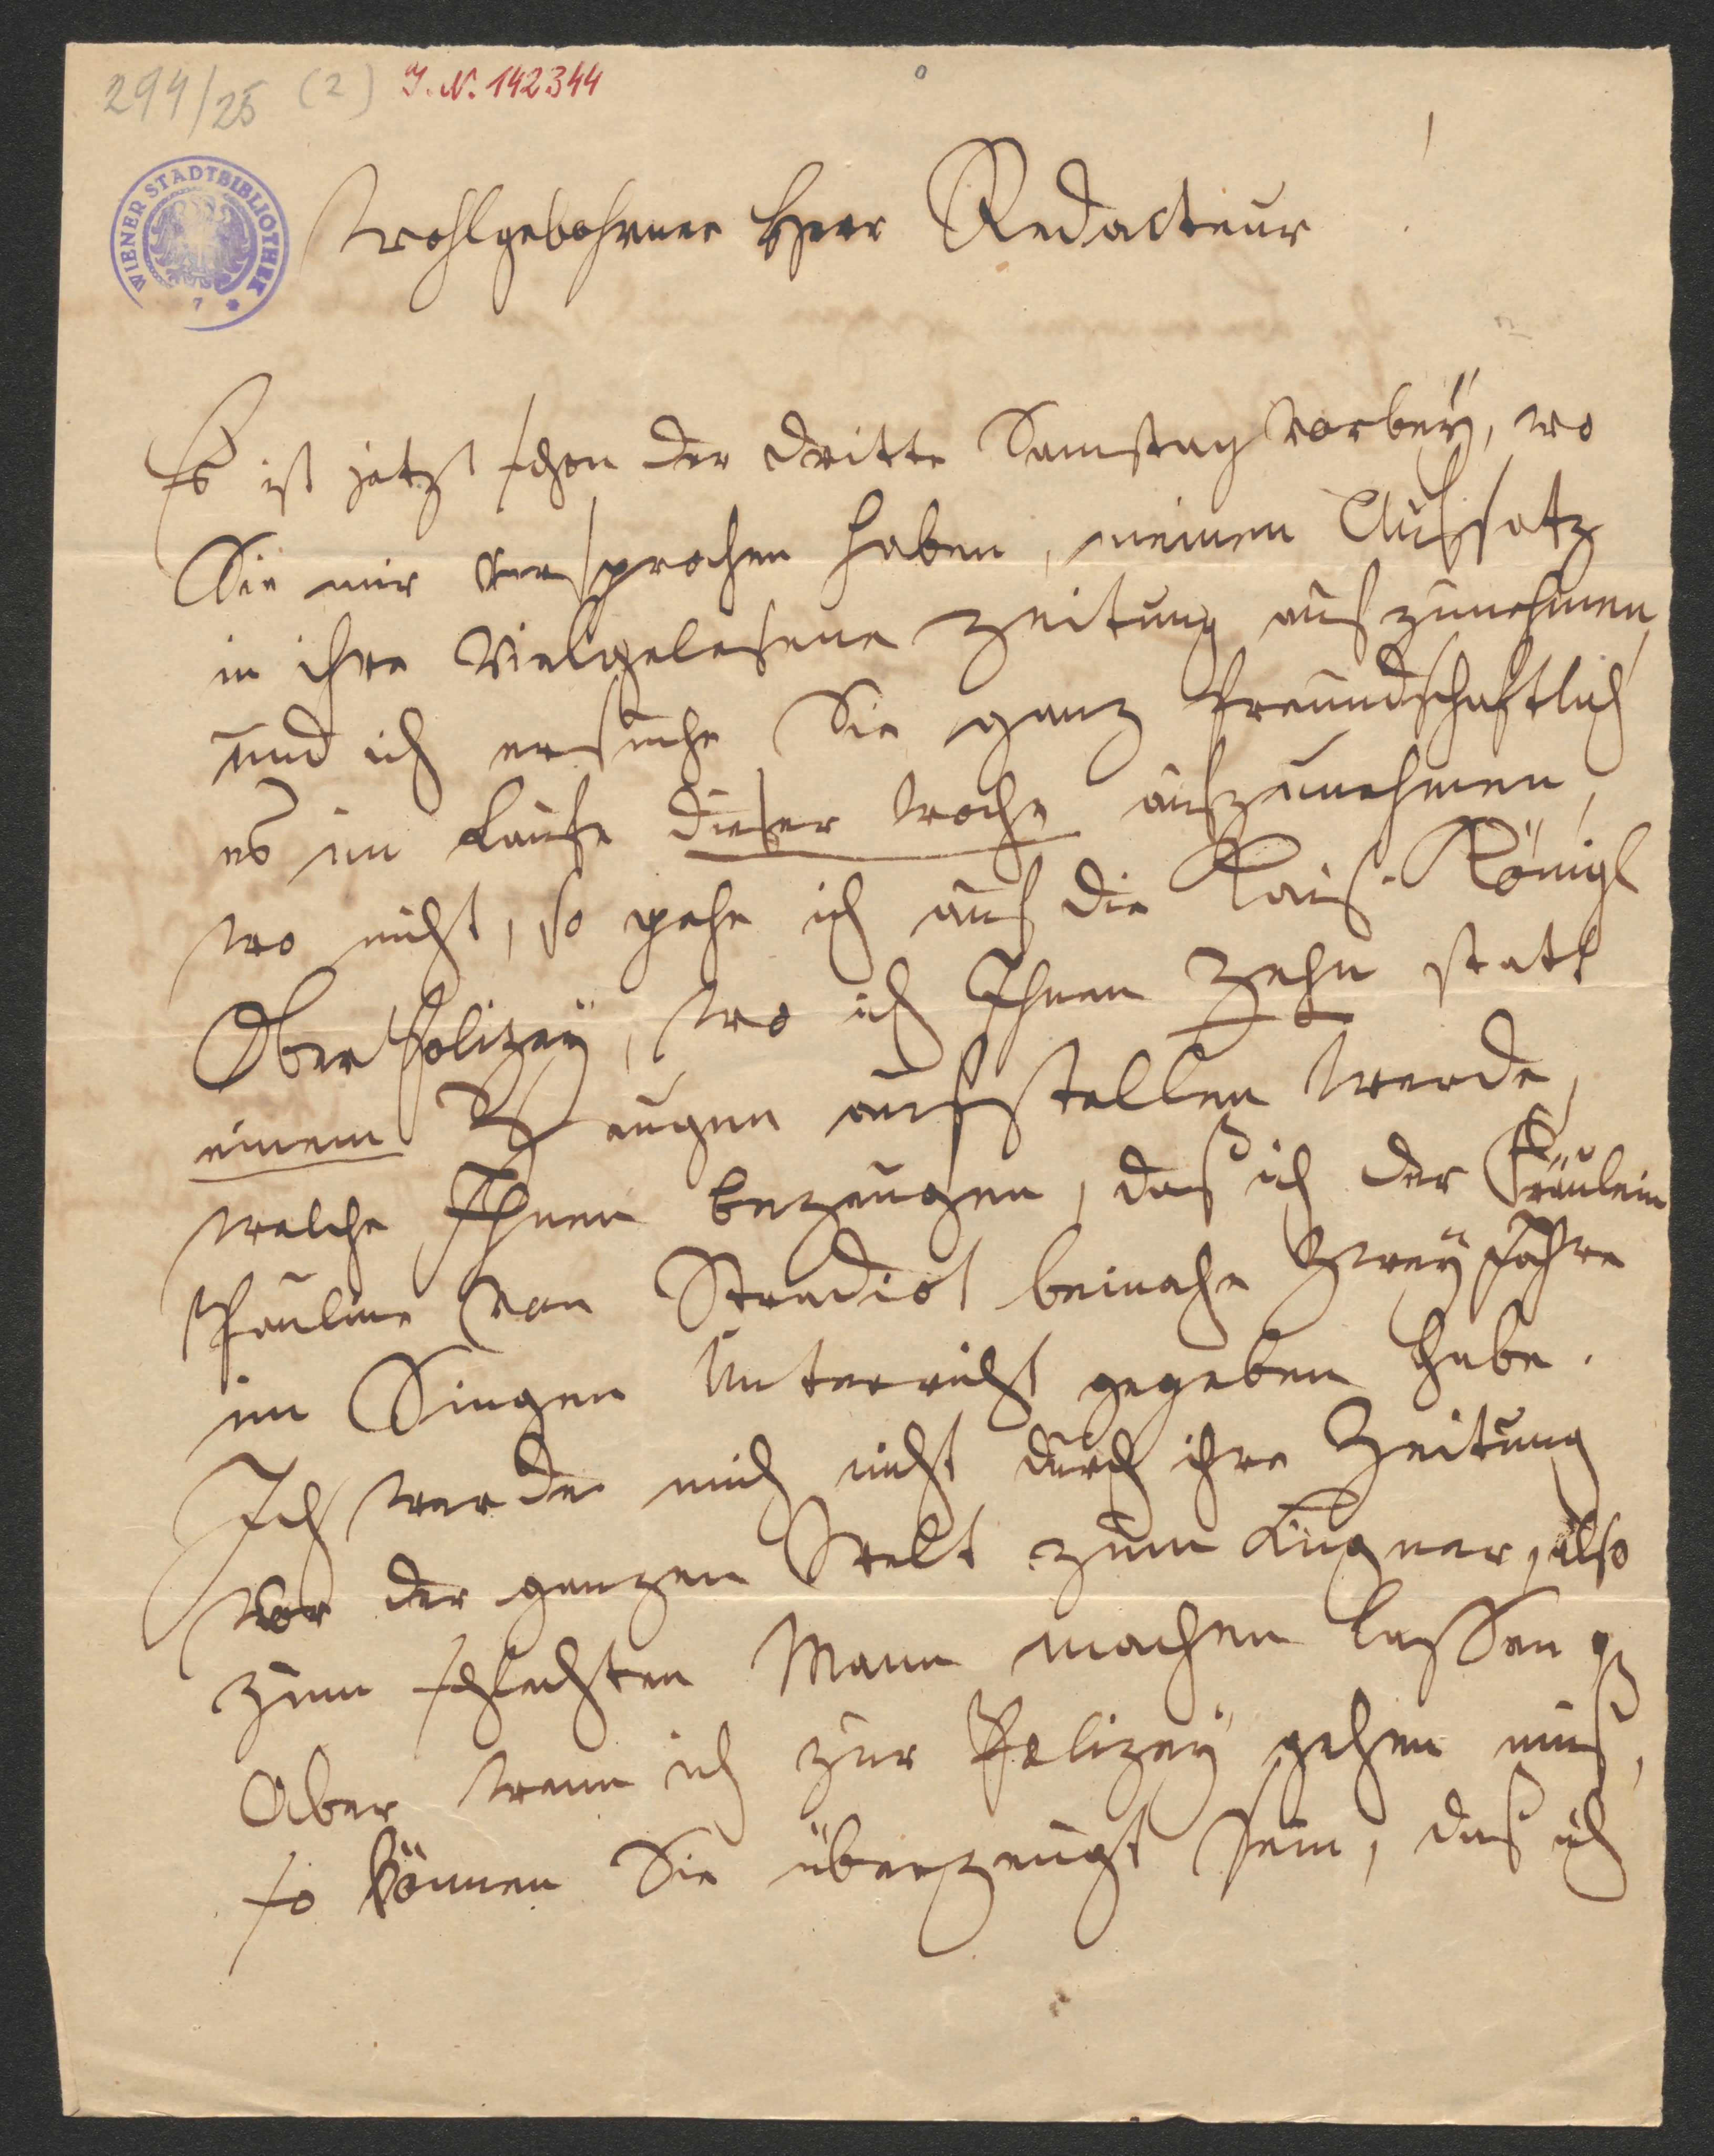 294/25 (2) I.N. 142344
WIENER STADTBIBLIOTHEK
7
Wohlgebohrner Herr Redacteur !
Es ist jetzt schon der dritte Samstag vorbeÿ, wo
Sie mir versprochen haben, meinen Aufsatz
in ihre Vielgelesene Zeitung aufzunehmen,
und ich ersuche Sie ganz freundschaftlich
es im Laufe dieser Woche aufzunehmen,
wo nicht, so gehe ich auf die Kais. Königl
Ober Polizeÿ, wo ich Ihnen Zehn statt
einem Zeugen aufstellen werde,
welche Ihnen bezeugen, daß ich der Fräulein
Pauline von Stradiot beinahe Zweÿ Jahre
im Singen Unterricht gegeben habe.
Ich werde mich nicht durch ihre Zeitung
vor der ganzen Welt zum Lügner, also
zum schlechten Mann machen lassen
Aber wenn ich zur Polizeÿ gehen muß,
so können Sie überzeugt sein, daß ich